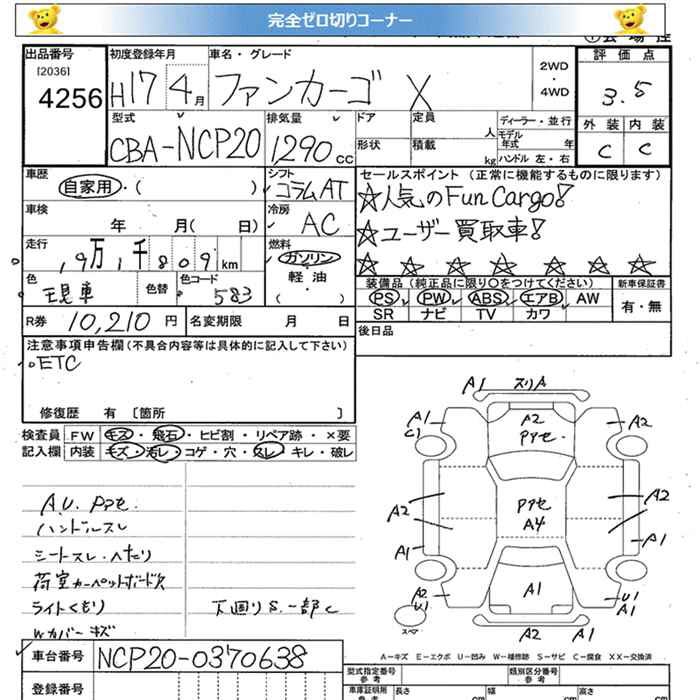 完全ゼロ切りコーナー
出品番号 初度登録年月 車名・グレード 評価点
[2036] 4256 H17年4月 ファンカーゴ X 2WD・4WD 3.5
型式 排気量 ドア 定員 人 ディーラー・並行 外装 内装
CBA-NCP20 1290cc 形状 積載 kg モデル年式 年 ハンドル 左・右 C C
車歴 自家用・( ) シフト コラムAT セールスポイント (正常に機能するものに限ります)
☆人気のFunCargo!
車検 年 月( 日) 冷房 AC ☆ユーザー買取車!
走行 9万1千809km 燃料 ガソリン ☆☆☆☆☆☆☆
色 色替 色コード 583 軽油・( )
装備品 (純正品に限り〇をつけてください) 新車保証書
PS PW ABS エアB AW 有・無
SR ナビ TV カワ
R券 10,210円 名変期限 月 日 後日品
注意事項申告欄(不具合内容等は具体的に記入して下さい)
ETC
修復歴 有〔箇所 〕
検査員 FW キズ・飛石・ヒビ割・リペア跡・×要
記入欄 内装 キズ・汚レ・コゲ・穴・スレ・キレ・破レ
ハンドルスレ
シートスレ・ヘたり
荷室カーペットボード欠
ライトくもり 下廻りS.一部C
Wカバーキズ
A1 スリA
A1 C1 A2 A2
A2 A2
A4
A1 A1
A2 U1 A1 U1 A1
スペア
A2
A－キズ E－エクボ U－凹み W－補修跡 S－サビ C－腐食 XX－交換済
車台番号 NCP20-0370638
型式指定番号 参考 類別区分番号 参考
登録番号 車庫証明用 参考 長さ cm 幅 cm 高さ cm